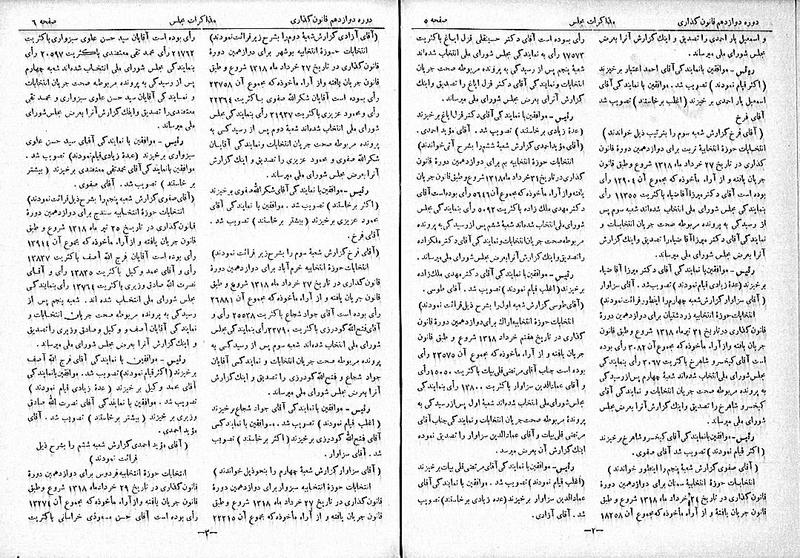 دوره دوازدهم قانون گذاری
مذاکرات مجلس
صفحه ۵
و اسمعیل یار احمدی را تصدیق و اینك گزارش آنرا بعرض
مجلس شورای ملی میرساند.
رئیس - موافقین با نمایندگی آقای احمد اعتبار برخیزند
(اکثر قیام نمودند) تصویب شد. موافقین با نمایندگی آقای
اسمعیل یار احمدی برخیزند (اغلب برخاستند) تصویب شد
آقای فرخ
(آقای فرخ گزارش شعبه سوم را بترتیب ذیل خواندند)
انتخابات حوزهٔ انتخابیه تربت برای دوازدهمین دورهٔ قانون
گذاری در تاریخ ۲۷ خرداد ماه ۱۳۱۸ شروع و طبق قانون
جریان یافته و از آراء مأخوذه که بمجموع آن ۱۲۹۰۹ رأی
بوده است آقای دکتر میرزا آقا ضیاء باکثریت ۱۱۳۵۵ رأی
بنمایندگی مجلس شورای ملی انتخاب شده‌اند شعبه سوم پس
از رسیدگی به پرونده مربوطه صحت جریان انتخابات و
نمایندگی آقای دکتر میرزا آقا ضیاء را تصدیق و اینك گزارش
آنرا بعرض مجلس شورای ملی میرساند.
رئیس - موافقین با نمایندگی آقای دکتر میرزا آقا ضیاء
برخیزند (عدهٔ زیادی قیام نمودند) تصویب شد. آقای سزاوار
(آقای سزاوار گزارش شعبه چهارم را اینطور قرائت نمودند)
انتخابات حوزهٔ انتخابیه زردشتیان برای دوازدهمین دورهٔ
قانون گذاری در تاریخ ۳۱ تیر ماه ۱۳۱۸ شروع و طبق قانون
جریان یافته و از آراء مأخوذه که بمجموع آن ۳۰۸۲ رأی بوده
است آقای کیخسرو شاهرخ باکثریت ۳۰۶۷ رأی بنمایندگی
مجلس شورای ملی انتخاب شده‌اند شعبه چهارم پس از رسیدگی
به پرونده مربوطه صحت جریان انتخابات و نمایندگی آقای
کیخسرو شاهرخ را تصدیق و اینك گزارش آنرا بعرض مجلس
شورای ملی میرساند.
رئیس - موافقین با نمایندگی آقای کیخسرو شاهرخ برخیزند
(اکثر قیام نمودند) تصویب شد آقای صفوی.
(آقای صفوی گزارش شعبهٔ پنجم را اینطور خواندند)
انتخابات حوزهٔ انتخابیه سمنان برای دوازدهمین دورهٔ قانون
گذاری در تاریخ ۲۱ تیر ماه ۱۳۱۸ شروع و طبق قانون
جریان یافته و از آراء مأخوذه که بمجموع آن ۱۸۲۵۸
رأی بوده است آقای دکتر حسینقلی قزل ایاغ باکثریت
۱۷۵۷۳ رأی به نمایندگی مجلس شورای ملی انتخاب شده‌اند
شعبه پنجم پس از رسیدگی به پرونده مربوطه صحت جریان
انتخابات و نمایندگی آقای دکتر قزل ایاغ را تصدیق و اینك
گزارش آنرا بعرض مجلس شورای ملی میرساند.
رئیس - موافقین با نمایندگی آقای دکتر قزل ایاغ برخیزند
(عدهٔ زیادی برخاستند) تصویب شد. آقای مؤید احمدی.
(آقای مؤید احمدی گزارش شعبهٔ ششم را بشرح آتی خواندند)
انتخابات حوزهٔ انتخابیه بم برای دوازدهمین دورهٔ قانون
گذاری در تاریخ ۳۱ خرداد ماه ۱۳۱۸ شروع و طبق قانون جریان
یافته و از آراء مأخوذه که بمجموع آن ۵۶۱۹ رأی بوده است آقای
دکتر مهدی ملك زاده باکثریت ۵۰۹۳ رأی بنمایندگی مجلس
شورای ملی انتخاب شده‌اند شعبه ششم پس از رسیدگی به پرونده
مربوطه صحت جریان انتخابات و نمایندگی آقای دکتر ملك زاده
را تصدیق و اینك گزارش آنرا بعرض مجلس شورای ملی میرساند.
رئیس - موافقین با نمایندگی آقای دکتر مهدی ملك زاده
برخیزند (اغلب قیام نمودند) تصویب شد. آقای طوسی.
(آقای طوسی گزارش شعبه اول را بشرح ذیل قرائت نمودند)
انتخابات حوزهٔ انتخابیه اراك برای دوازدهمین دورهٔ قانون
گذاری در تاریخ هفتم خرداد ماه ۱۳۱۸ شروع و طبق قانون
جریان یافته و از آراء مأخوذه که بمجموع آن ۲۳۵۷۵ رأی
بوده است جناب آقای مرتضی قلی بیات باکثریت ۲۰۵۰۵ رأی
و آقای عمادالدین سزاوار باکثریت ۱۲۸۰۰ رأی بنمایندگی
مجلس شورای ملی انتخاب شده‌اند شعبه اول پس از رسیدگی به
پرونده مربوطه صحت جریان انتخابات و نمایندگی جناب آقای
مرتضی قلی بیات و آقای عمادالدین سزاوار را تصدیق نموده
اینك گزارش آن بعرض میرسد.
رئیس - موافقین با نمایندگی آقای مرتضی قلی بیات برخیزند
(اغلب قیام نمودند) تصویب شد. موافقین با نمایندگی آقای
عمادالدین سزاوار برخیزند (عده زیادی برخاستند) تصویب
شد. آقای آزادی.
-۲-
دوره دوازدهم قانون گذاری
مذاکرات مجلس
صفحه ۶
(آقای آزادی گزارش شعبهٔ دوم را بشرح زیر قرائت نمودند)
انتخابات حوزهٔ انتخابیه بوشهر برای دوازدهمین دورهٔ
قانون گذاری در تاریخ ۲۷ خرداد ماه ۱۳۱۸ شروع و طبق
قانون جریان یافته و از آراء مأخوذه که بمجموع آن ۲۳۷۵۸
رأی بوده است آقایان شکرالله صفوی باکثریت ۲۲۳۹۴
رأی و محمود عزیزی باکثریت ۲۱۹۳۷ رأی بنمایندگی مجلس
شورای ملی انتخاب شده‌اند شعبهٔ دوم پس از رسیدگی به
پرونده مربوطه صحت جریان انتخابات و نمایندگی آقایان
شکرالله صفوی و محمود عزیزی را تصدیق و اینك گزارش
آنرا بعرض مجلس شورای ملی میرساند.
رئیس - موافقین با نمایندگی آقای شکرالله صفوی برخیزند
(اکثر برخاستند) تصویب شد. موافقین با نمایندگی آقای
محمود عزیزی برخیزند (بیشتر برخاستند) تصویب شد.
آقای فرخ.
(آقای فرخ گزارش شعبهٔ سوم را بشرح زیر قرائت نمودند)
انتخابات حوزهٔ انتخابیه خرم آباد برای دوازدهمین دورهٔ
قانون گذاری در تاریخ ۲۷ خرداد ماه ۱۳۱۸ شروع و طبق
قانون جریان یافته و از آراء مأخوذه که بمجموع آن ۲۶۸۸۱
رأی بوده است آقای جواد شجاع باکثریت ۲۵۵۳۸ رأی و
آقای فتح‌الله گودرزی باکثریت ۲۲۷۹۰ رأی بنمایندگی مجلس
شورای ملی انتخاب شده‌اند. شعبه سوم پس از رسیدگی به
پرونده مربوطه صحت جریان انتخابات و نمایندگی آقایان
جواد شجاع و فتح‌الله گودرزی را تصدیق و اینك گزارش
آنرا بعرض مجلس شورای ملی میرساند.
رئیس - موافقین با نمایندگی آقای جواد شجاع برخیزند
(اغلب قیام نمودند) تصویب شد. موافقین با نمایندگی
آقای فتح‌الله گودرزی برخیزند (اکثر برخاستند) تصویب
شد. آقای سزاوار.
(آقای سزاوار گزارش شعبهٔ چهارم را بنحو ذیل خواندند)
انتخابات حوزهٔ انتخابیه سبزوار برای دوازدهمین دورهٔ
قانون گذاری در تاریخ ۲۷ خرداد ماه ۱۳۱۸ شروع و طبق
قانون جریان یافته و از آراء مأخوذه که بمجموع آن ۲۲۳۱۵
رأی بوده است آقایان سید حسن علوی سبزواری باکثریت
۲۱۷۶۳ رأی محمد تقی معتضدی باکثریت ۲۰۵۹۷ رأی
بنمایندگی مجلس شورای ملی انتخاب شده‌اند شعبه چهارم
پس از رسیدگی به پرونده مربوطه صحت جریان انتخابات
و نمایندگی آقایان سید حسن علوی سبزواری و محمد تقی
معتضدی را تصدیق و اینك گزارش آنرا بعرض مجلس شورای
ملی میرساند.
رئیس - موافقین با نمایندگی آقای سید حسن علوی
سبزواری برخیزند (عدهٔ زیادی قیام نمودند) تصویب شد.
موافقین با نمایندگی آقای محمد تقی معتضدی برخیزند (بیشتر
برخاستند) تصویب شد. آقای صفوی.
(آقای صفوی گزارش شعبه پنجم را بشرح ذیل قرائت نمودند)
انتخابات حوزهٔ انتخابیه سنندج برای دوازدهمین دورهٔ
قانون گذاری در تاریخ ۲۵ تیر ماه ۱۳۱۸ شروع و طبق
قانون جریان یافته و از آراء مأخوذه که بمجموع آن ۱۳۹۱۱
رأی بوده است آقایان فرج الله آصف باکثریت ۱۳۸۳۷
رأی و آقای محمد وکیل باکثریت ۱۳۸۲۵ رأی و آقای
نصرت الله صادق وزیری باکثریت ۱۳۷۶۱ رأی بنمایندگی
مجلس شورای ملی انتخاب شده‌اند. شعبه پنجم پس از
رسیدگی به پرونده مربوطه صحت جریان انتخابات و
نمایندگی آقایان آصف و وکیل و صادق وزیری را تصدیق
و اینك گزارش آنرا بعرض مجلس شورای ملی میرساند.
رئیس - موافقین با نمایندگی آقای فرج الله آصف
برخیزند (اکثر قیام نمودند) تصویب شد. موافقین با نمایندگی
آقای محمد وکیل برخیزند (عدهٔ زیادی قیام نمودند)
تصویب شد. موافقین با نمایندگی آقای نصرت الله صادق
وزیری برخیزند (بیشتر برخاستند) تصویب شد. آقای
مؤید احمدی.
(آقای مؤید احمدی گزارش شعبه ششم را بشرح ذیل
قرائت نمودند)
انتخابات حوزهٔ انتخابیه فردوس برای دوازدهمین دورهٔ
قانون گذاری در تاریخ ۲۹ خرداد ماه ۱۳۱۸ شروع و طبق
قانون جریان یافته و از آراء مأخوذه که بمجموع آن ۱۳۲۷۱
رأی بوده است آقای حسن مسعودی خراسانی باکثریت
-۳-